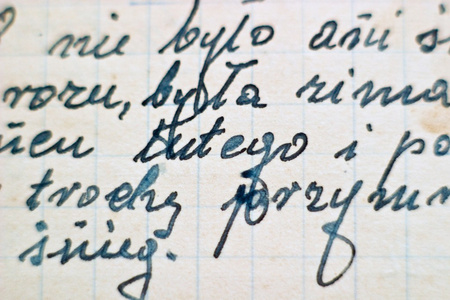 nie było ani ś
rozu, była zima
ńcu lutego i po
trochę przym
śnieg.